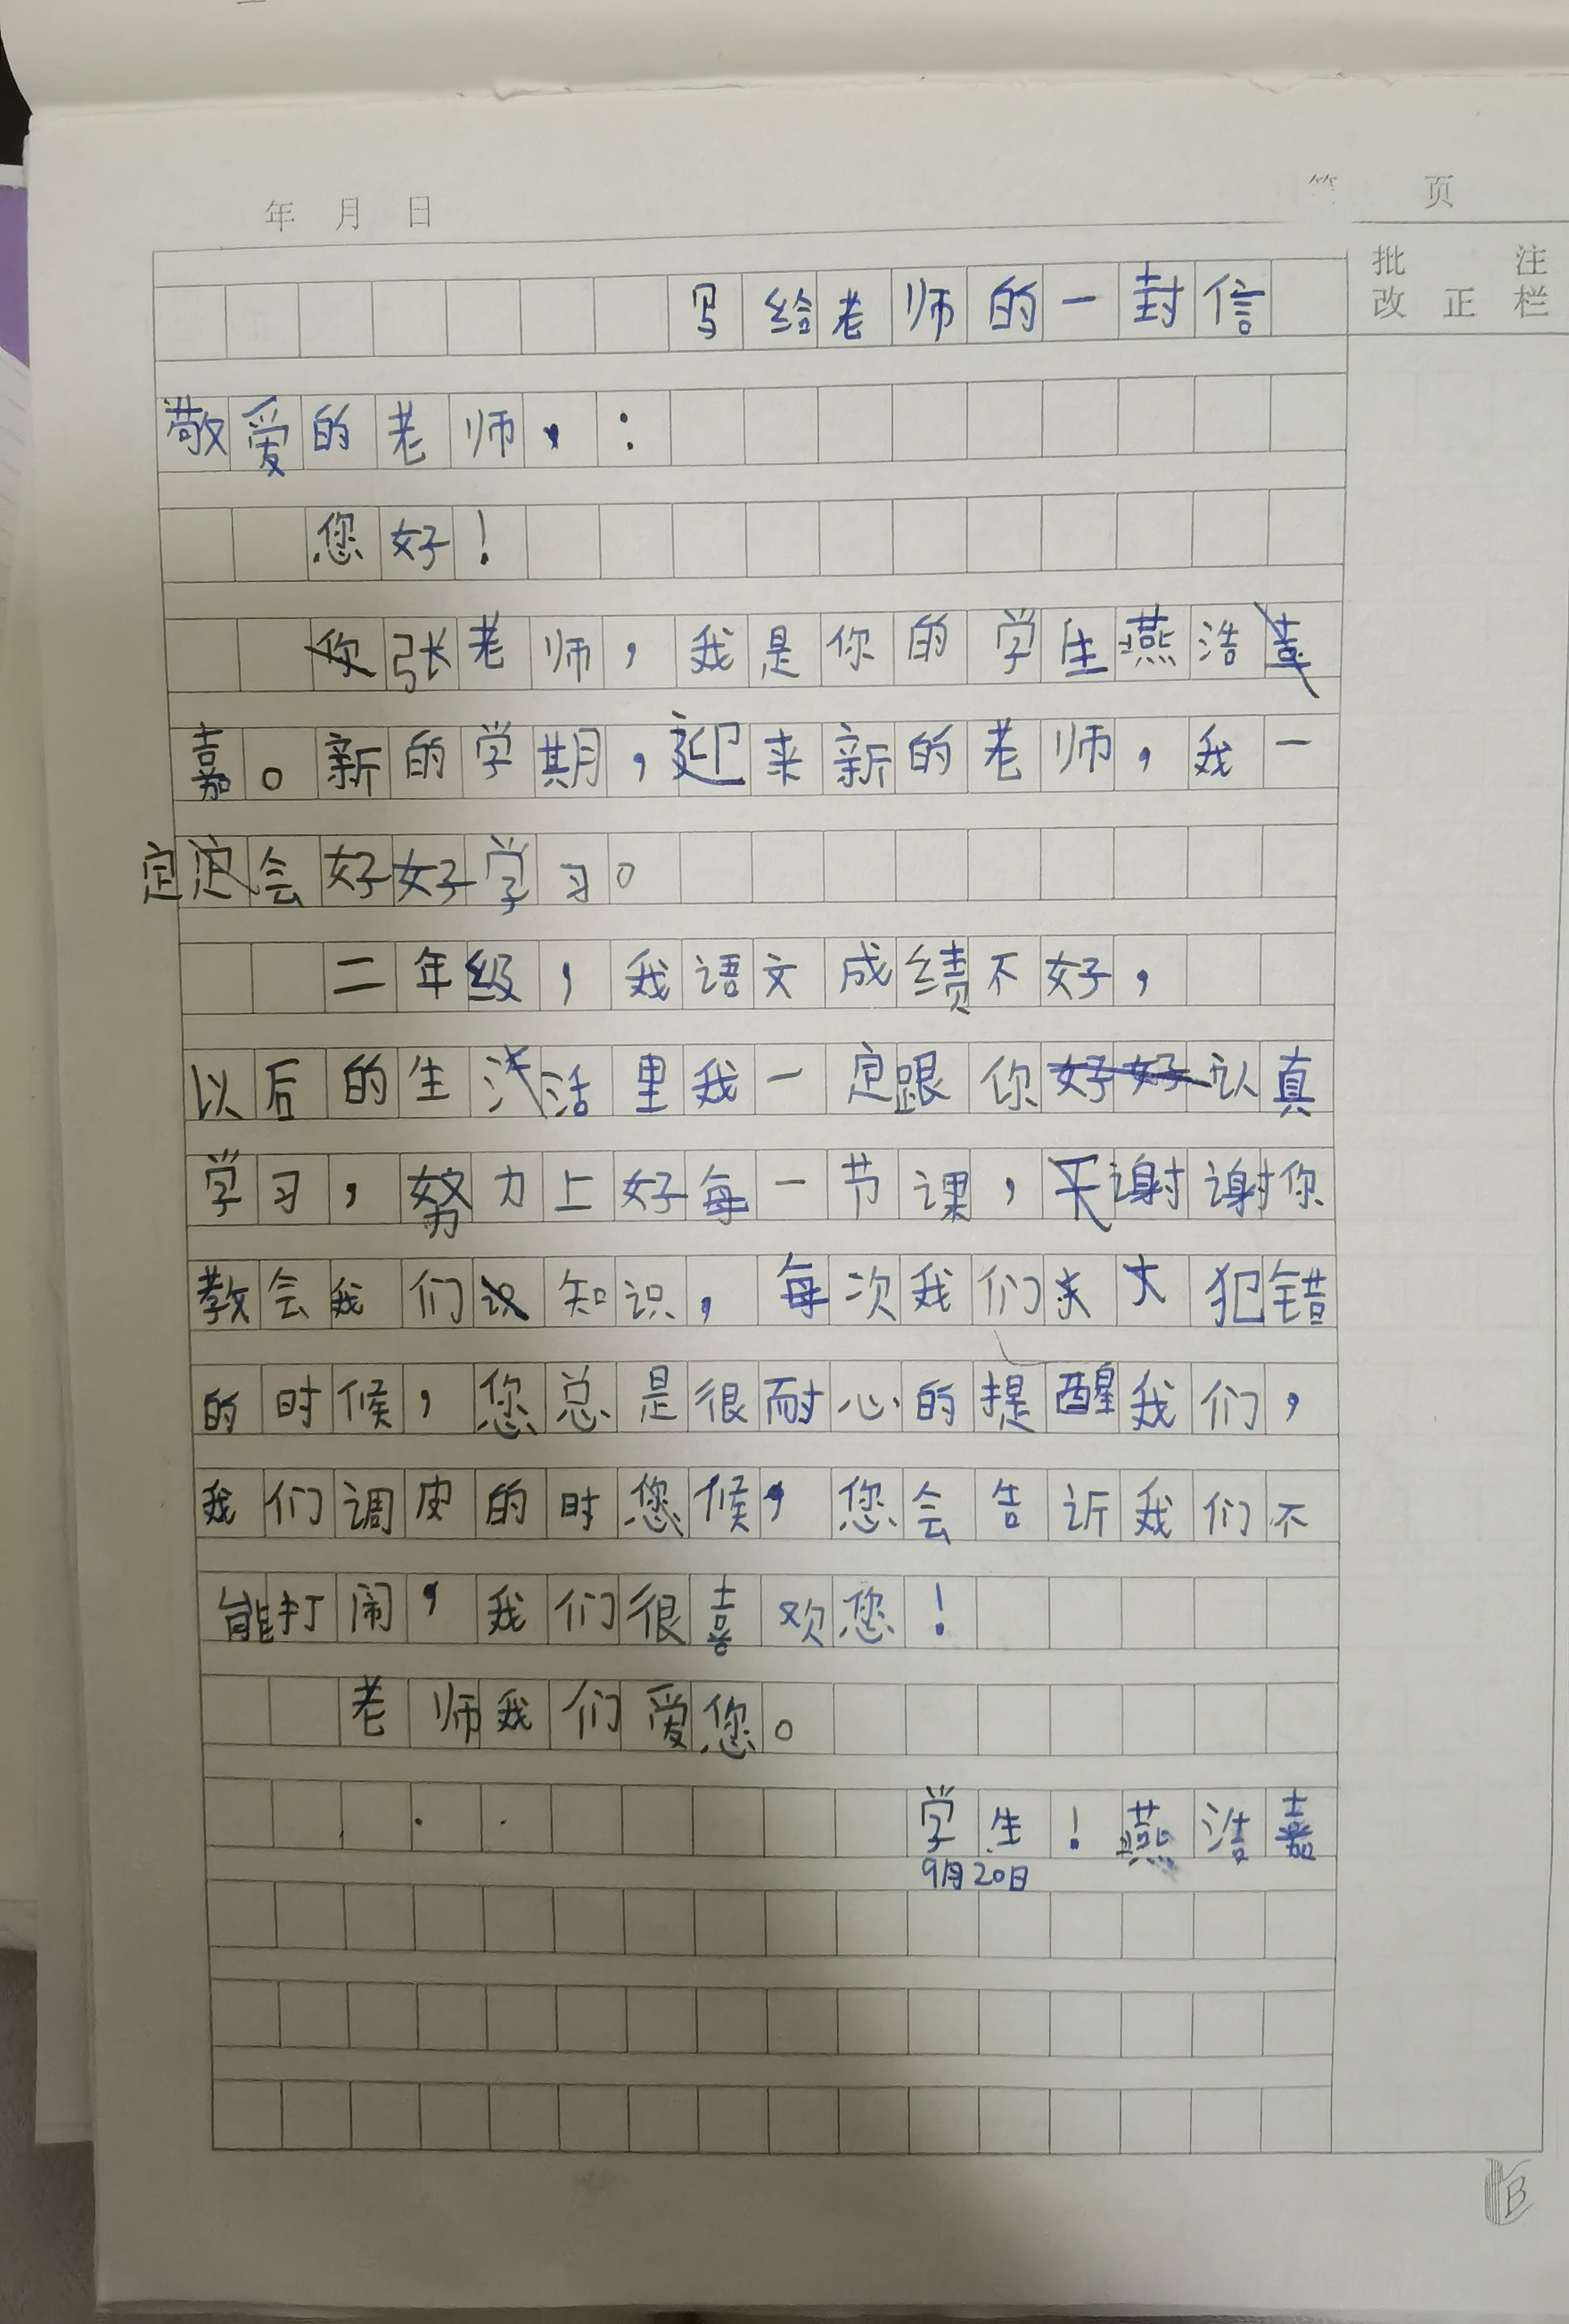 年 月 日
第 页
批 注
改 正 栏
写给老师的一封信
敬爱的老师,:
您好!
张老师,我是你的学生燕浩
嘉。新的学期,迎来新的老师,我一
定会好好学习。
二年级,我语文成绩不好,
以后的生活里我一定跟你好好认真
学习,努力上好每一节课,谢谢你
教会我们知识,每次我们犯错
的时候,您总是很耐心的提醒我们,
我们调皮的时您候,您会告诉我们不
能打闹,我们很喜欢您!
老师我们爱您。
学生!燕浩嘉
9月20日